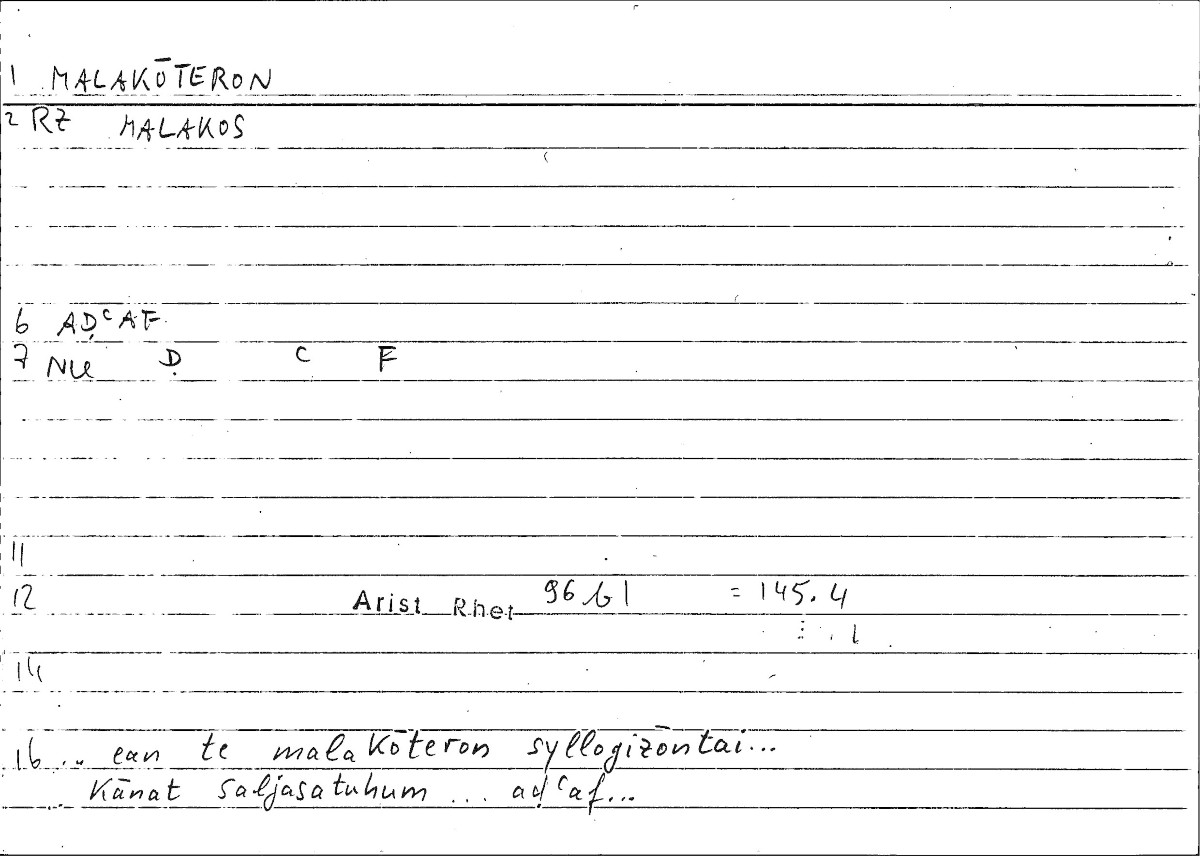 1 MALAKŌTERON
2 RZ MALAKOS
6 AḌᶜAF
7 NU Ḍ ᶜ F
11
12 Arist Rhet 96 b 1 = 145.4
14
16 ... ean te malakōteron syllogizōntai...
... kānat saljasatuhum ... aḍᶜaf...